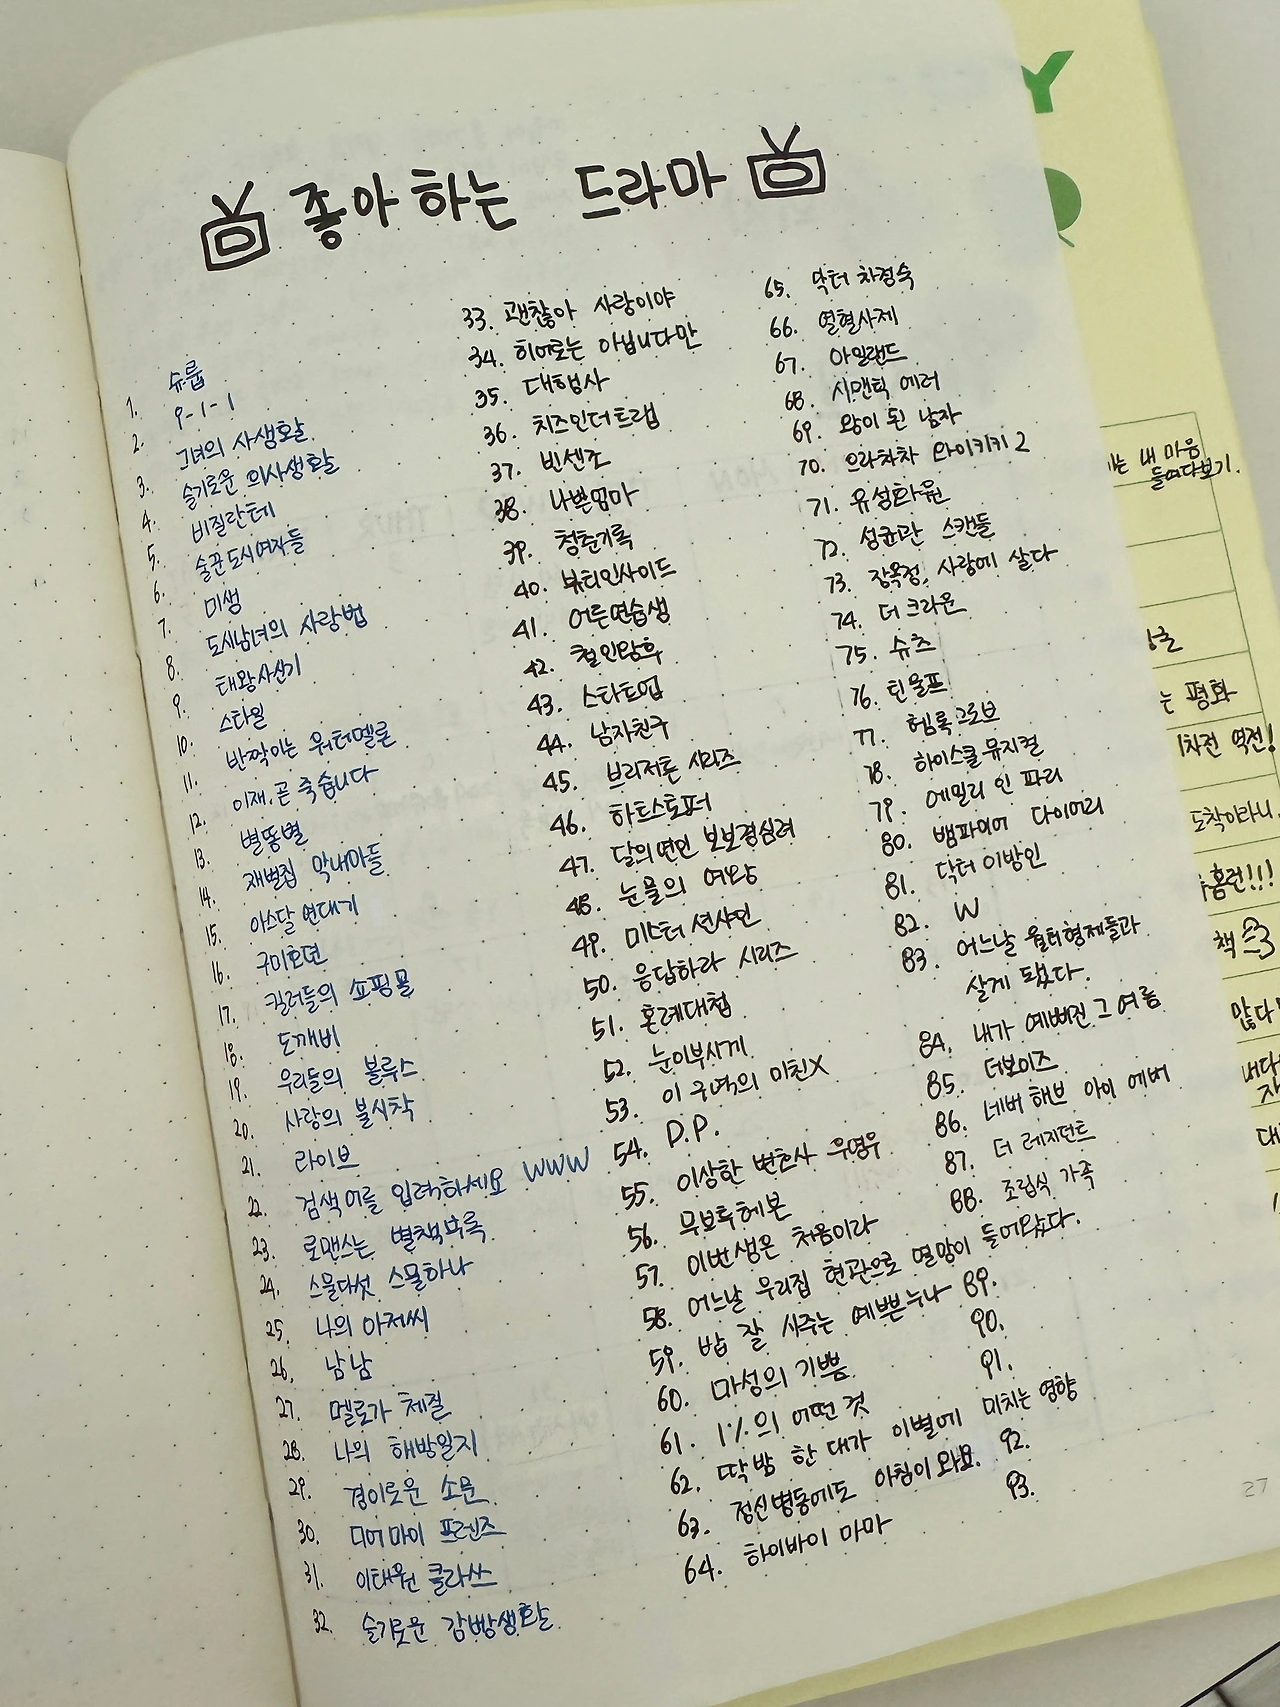 좋아하는 드라마
1. 슈룹
2. 9-1-1
3. 그녀의 사생활
4. 슬기로운 의사생활
5. 비질란테
6. 술꾼도시여자들
7. 미생
8. 도시남녀의 사랑법
9. 태왕사신기
10. 스타일
11. 반짝이는 워터멜론
12. 이재, 곧 죽습니다
13. 별똥별
14. 재벌집 막내아들
15. 아스달 연대기
16. 구미호뎐
17. 킬러들의 쇼핑몰
18. 도깨비
19. 우리들의 블루스
20. 사랑의 불시착
21. 라이브
22. 검색어를 입력하세요 WWW
23. 로맨스는 별책부록
24. 스물다섯 스물하나
25. 나의 아저씨
26. 남남
27. 멜로가 체질
28. 나의 해방일지
29. 경이로운 소문
30. 디어 마이 프렌즈
31. 이태원 클라쓰
32. 슬기로운 감빵생활
33. 괜찮아 사랑이야
34. 히어로는 아닙니다만
35. 대행사
36. 치즈인더트랩
37. 빈센조
38. 나쁜엄마
39. 청춘기록
40. 뷰티인사이드
41. 어른연습생
42. 철인왕후
43. 스타트업
44. 남자친구
45. 브리저튼 시리즈
46. 하트스토퍼
47. 달의 연인 보보경심려
48. 눈물의 여왕
49. 미스터 션샤인
50. 응답하라 시리즈
51. 혼례대첩
52. 눈이부시게
53. 이 구역의 미친X
54. D.P.
55. 이상한 변호사 우영우
56. 무브투헤븐
57. 이번생은 처음이라
58. 어느날 우리집 현관으로 멸망이 들어왔다.
59. 밥 잘 사주는 예쁜누나
60. 마성의 기쁨
61. 1%의 어떤 것
62. 딱밤 한 대가 이별에 미치는 영향
63. 정신병동에도 아침이 와요.
64. 하이바이 마마
65. 닥터 차정숙
66. 열혈사제
67. 아일랜드
68. 시맨틱 에러
69. 왕이 된 남자
70. 으라차차 와이키키 2
71. 유성화원
72. 성균관 스캔들
73. 장옥정, 사랑에 살다
74. 더 크라운
75. 슈츠
76. 틴울프
77. 헴록 그로브
78. 하이스쿨 뮤지컬
79. 에밀리 인 파리
80. 뱀파이어 다이어리
81. 닥터 이방인
82. W
83. 어느날 월터형제들과
살게 됐다.
84. 내가 예뻐진 그 여름
85. 더보이즈
86. 네버 해브 아이 에버
87. 더 레지던트
88. 조립식 가족
89.
90.
91.
92.
93.
27
Y
는 내 마음
들여다보기.
는 평화
차전 역전!
도착이라니,
홈런!!!
책